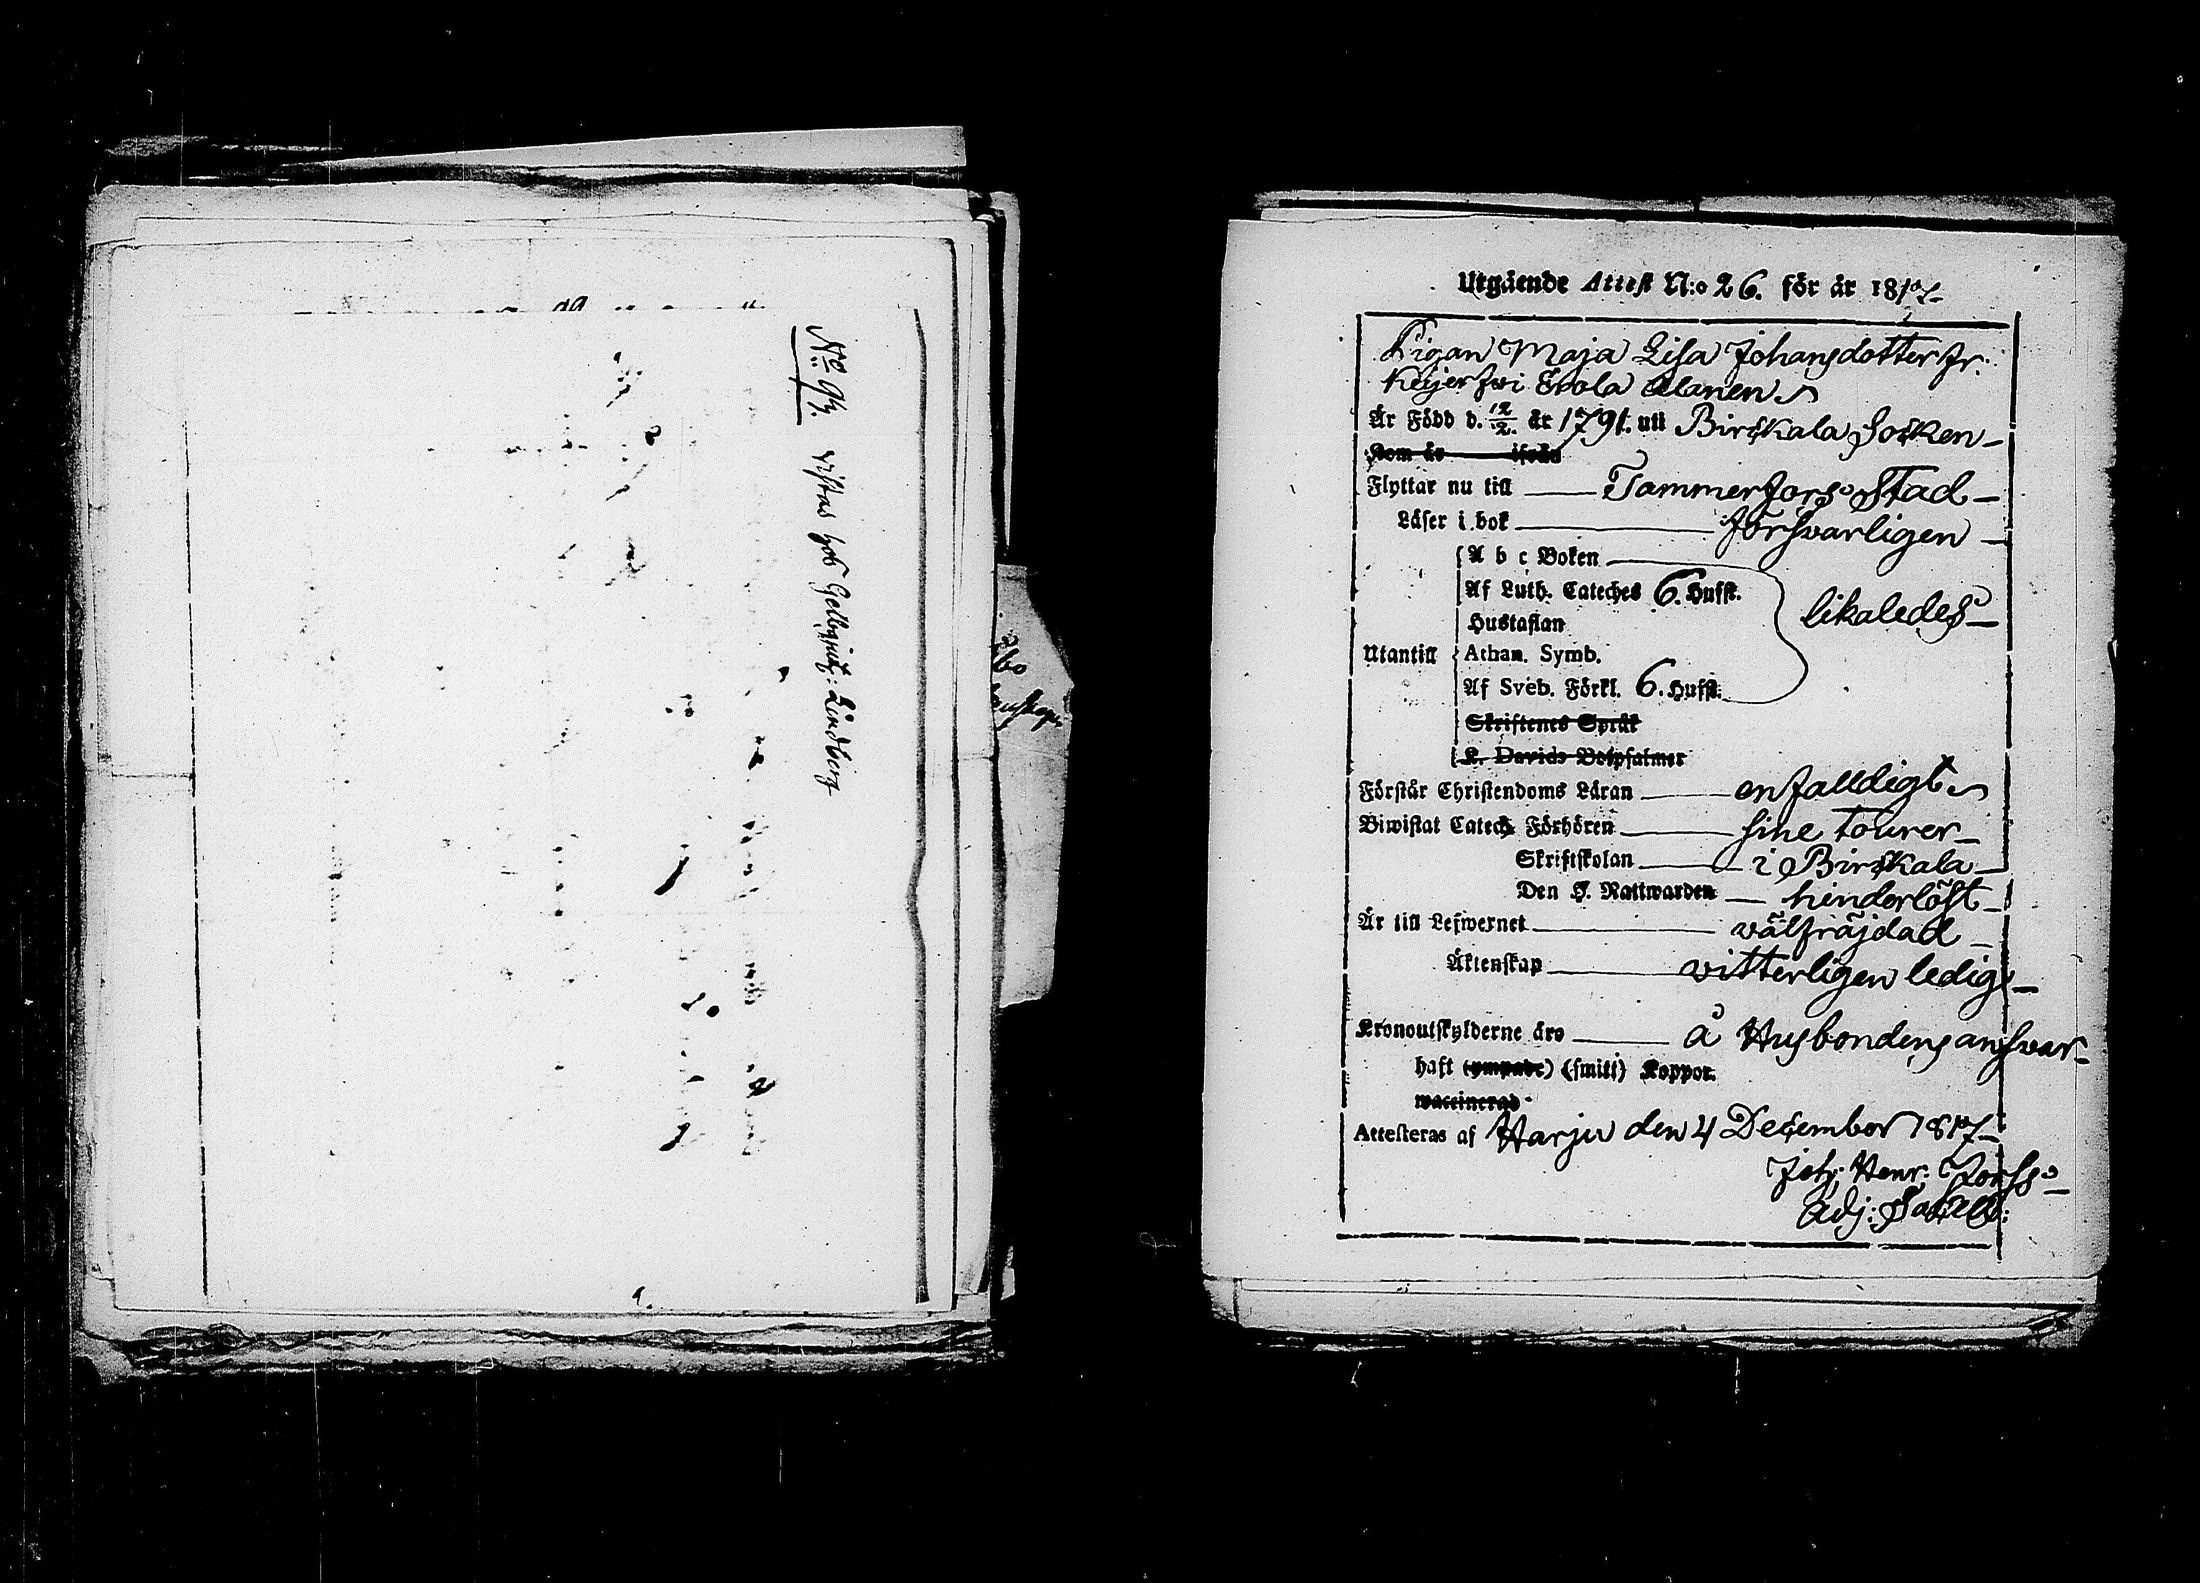 No 94.
vistas hos Gelbgjut: Lindberg
Utgående Attest N:o 26. för år 1817
Pigan Maja Lisa Johansdotter fr:
Är Född d. 12/2. år 1791. uti Birckala Socken
Kom år ifrån
Flyttar nu till Tammerfors Stad
Läser i bok försvarligen
A b c Boken
Af Luth. Cateches 6. Hufst.
likaledes
Hustaflan
Utantill Athan. Symb.
Af Sveb. Förkl. 6. Hufst.
Skriftenes Språk
K. Davids Botpsalmer
Förstår Christendoms Läran enfalldigt
Biwistat Catech Förhören sine tourer
Skriftskolan i Birckala
Den H. Nattwarden hinderlöst
Är till Lefwernet välfräjdad
Äktenskap vitterligen ledig
Kronoutskylderne äro å Husbondens answar
haft (ympade) (smitt) Koppor.
waccinerad
Attesteras af Harju den 4 December 1817
Joh: Henr: Forss
Adj: Sacell: